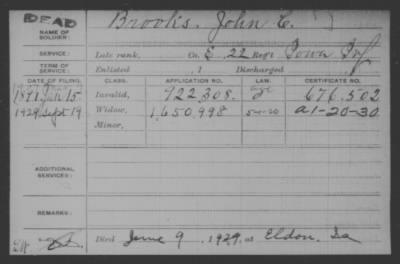 DEAD
Brooks, John E.
NAME OF SOLDIER:
SERVICE: Late rank, Co. E, 22 Reg't Iowa Inf
TERM OF SERVICE: Enlisted , 1 Discharged , 1
DATE OF FILING. CLASS. APPLICATION NO. LAW. CERTIFICATE NO.
1891 July 15 Invalid, 722,308. age 676.502
1929 Sept 19 Widow, 1,650,998 5-1-20 A1-20-30
Minor,
ADDITIONAL SERVICES:
REMARKS:
Died June 9, 1929, at Eldon, Ia